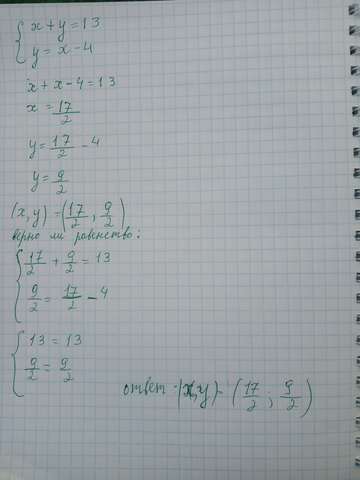 { x + y = 13
{ y = x - 4
x + x - 4 = 13
x = 17/2
y = 17/2 - 4
y = 9/2
(x, y) = (17/2, 9/2)
верно ли равенство:
{ 17/2 + 9/2 = 13
{ 9/2 = 17/2 - 4
{ 13 = 13
{ 9/2 = 9/2
ответ - (x, y) - (17/2 ; 9/2)